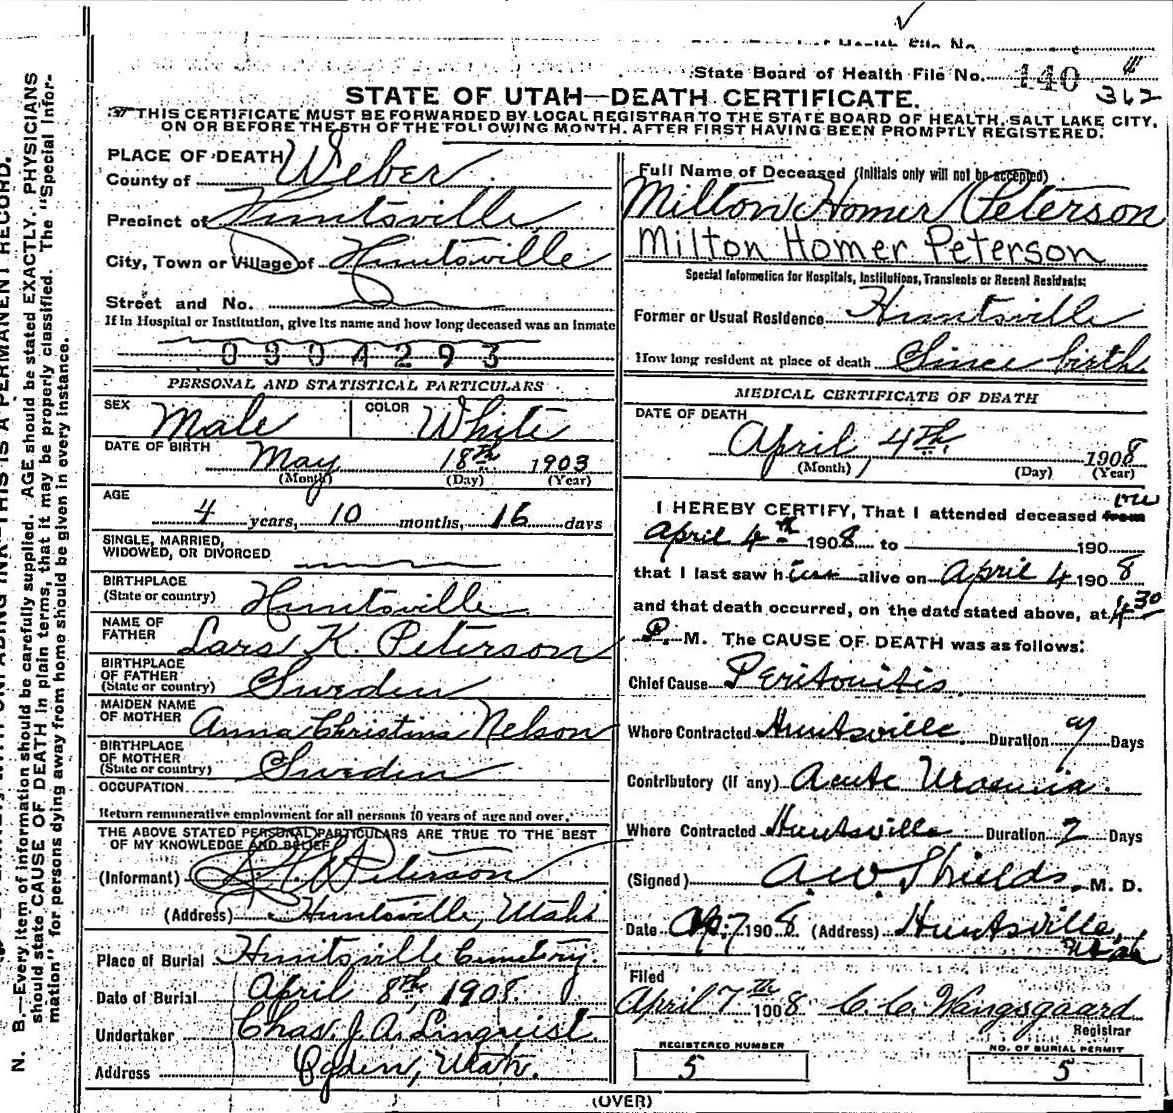 State Board of Health File No. 140
362
STATE OF UTAH—DEATH CERTIFICATE.
THIS CERTIFICATE MUST BE FORWARDED BY LOCAL REGISTRAR TO THE STATE BOARD OF HEALTH, SALT LAKE CITY,
ON OR BEFORE THE 5TH OF THE FOLLOWING MONTH, AFTER FIRST HAVING BEEN PROMPTLY REGISTERED.
PLACE OF DEATH
County of Weber
Precinct of Huntsville
City, Town or Village of Huntsville
Street and No.
If in Hospital or Institution, give its name and how long deceased was an inmate
0304293
PERSONAL AND STATISTICAL PARTICULARS
SEX Male COLOR White
DATE OF BIRTH May 18th 1903
(Month) (Day) (Year)
AGE
4 years, 10 months, 16 days
SINGLE, MARRIED,
WIDOWED, OR DIVORCED
BIRTHPLACE
(State or country) Huntsville
NAME OF
FATHER Lars K. Peterson
BIRTHPLACE
OF FATHER
(State or country) Sweden
MAIDEN NAME
OF MOTHER Anna Christina Nelson
BIRTHPLACE
OF MOTHER
(State or country) Sweden
OCCUPATION
Return remunerative employment for all persons 10 years of age and over.
THE ABOVE STATED PERSONAL PARTICULARS ARE TRUE TO THE BEST
OF MY KNOWLEDGE AND BELIEF
(Informant) L. K. Peterson
(Address) Huntsville, Utah
Place of Burial Huntsville Cemetery.
Date of Burial April 8th, 1908.
Undertaker Chas. J. A. Linquist.
Address Ogden, Utah.
Full Name of Deceased (Initials only will not be accepted)
Milton Homer Peterson
Milton Homer Peterson
Special Information for Hospitals, Institutions, Transients or Recent Residents:
Former or Usual Residence Huntsville
How long resident at place of death Since birth.
MEDICAL CERTIFICATE OF DEATH
DATE OF DEATH
April 4th, 1908
(Month) (Day) (Year)
I HEREBY CERTIFY, That I attended deceased from
April 4th 1908. to 190
that I last saw him alive on April 4 1908
and that death occurred, on the date stated above, at 4 30
P. M. The CAUSE OF DEATH was as follows:
Chief Cause Peritonitis.
Where Contracted Huntsville. Duration 9 Days
Contributory (if any) Acute Uraemia.
Where Contracted Huntsville Duration 2 Days
(Signed) A. W. Shields, M. D.
Date Ap. 7 1908. (Address) Huntsville,
Utah
Filed
April 7th 1908 C. C. Wangsgaard
Registrar
REGISTERED NUMBER
5
NO. OF BURIAL PERMIT
5
(OVER)
N. B.—Every item of information should be carefully supplied. AGE should be stated EXACTLY. PHYSICIANS
should state CAUSE OF DEATH in plain terms, that it may be properly classified. The "Special Infor-
mation" for persons dying away from home should be given in every instance.
THIS IS A PERMANENT RECORD.